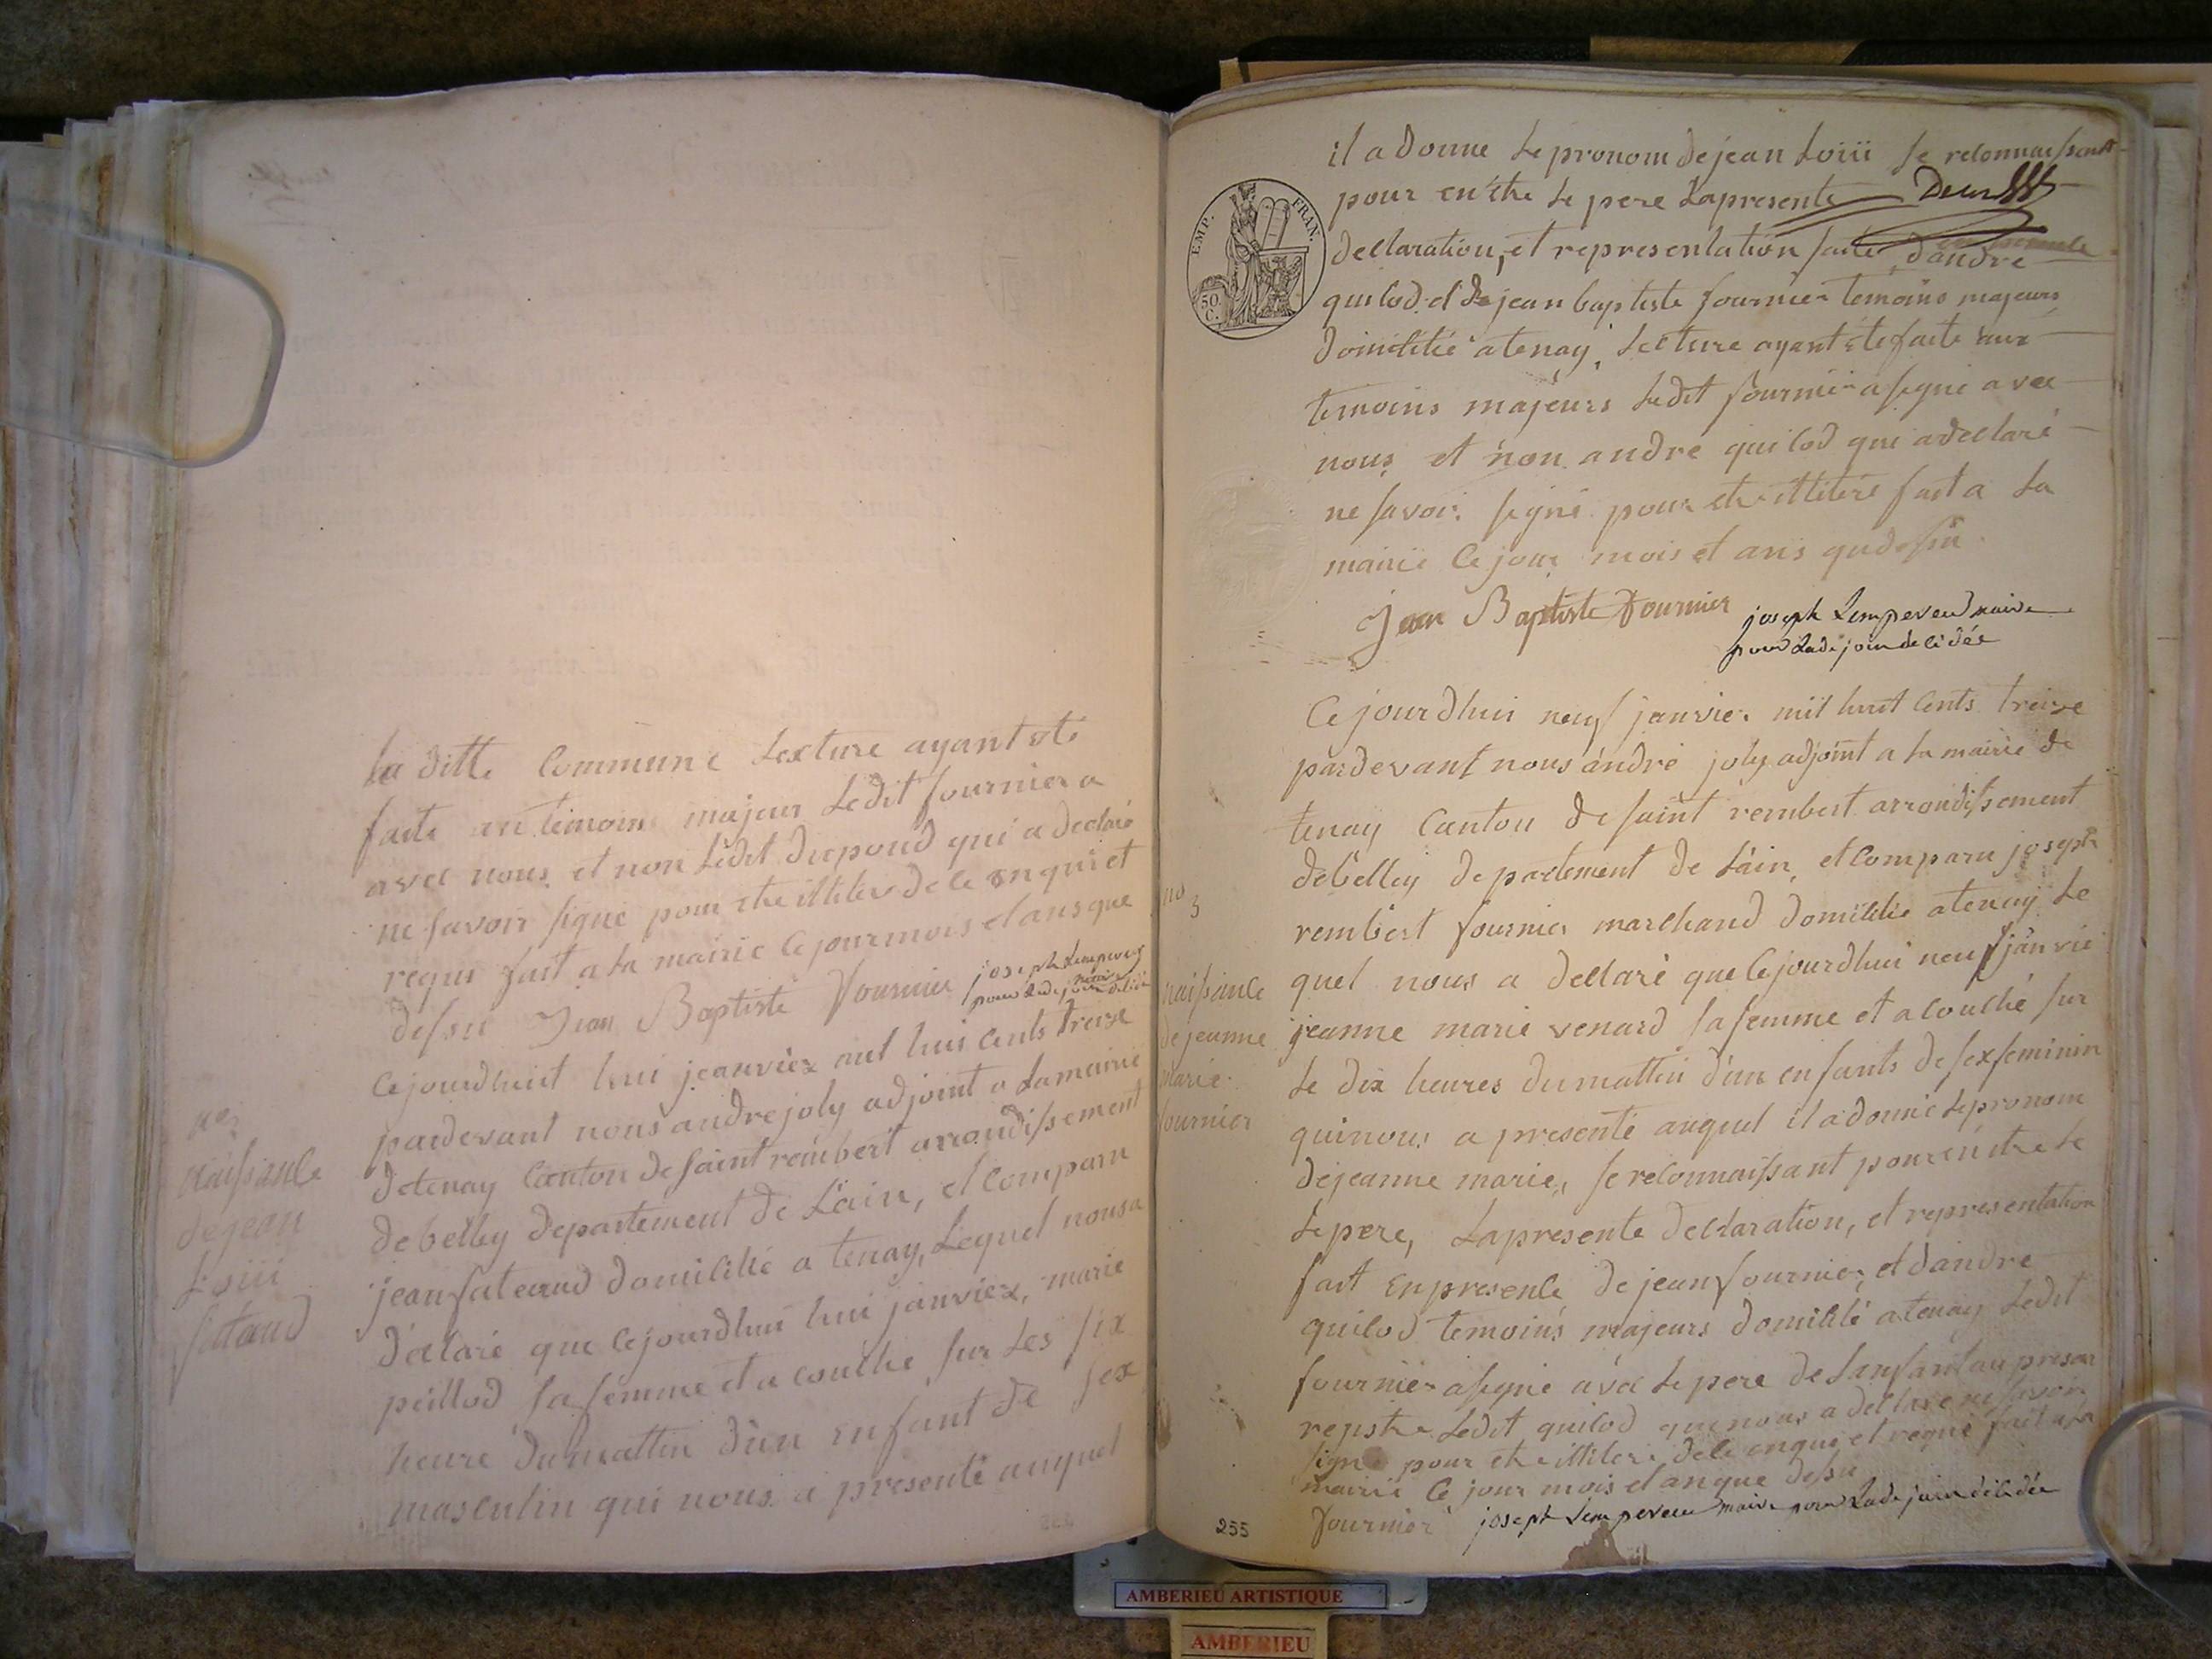 la ditte Commune Lexture ayant ete
faite au temoins majeur Ledit fournier a
avec nous et non Ledit dupond qui a declaré
ne savoir signé pour etre illiter de ce enqui et
requi fait a la mairie ce jour mois et ans que
dessu Jean Baptiste Fournier joseph Lempereur
maire
pour Ladijoin delidée
no 2
naissance
de jean
Loiii
sataud
Cejourdhuit hui jeanvier mil huis cents treize
pardevant nous andre joly adjoint a La mairie
de tenay Canton de saint rembert arrondissement
de belley departement de L'ain, et Comparu
jean domicilié a tenay, Lequel nous a
déclaré que cejourdhui hui janvier, marie
peillod sa femme et a couche sur Les six
heure du mattin d'un enfant de sex
masculin qui nous a presenté auquel
il a donne Le pronom de jean Loiii se reconnaissant
pour en etre Le pere La presente
declaration, et representation faite dandre
quilod et de jean baptiste fournier temoins majeurs
domicilié a tenay, Lecture ayant ete faite aux
temoins majeurs Ledit fournier a signé avec
nous et non andre quilod qui a declaré
ne savoir signé pour etre illiteré fait a La
mairie Ce jour mois et ans qudessu
Jean Baptiste Fournier joseph Lempereur maire
pour Ladijoin delidée
EMP. FRAN.
50.
C.
no 3
naissance
de jeanne
Marie
fournier
Ce jourdhui neuf janvier mil huit Cents treize
pardevant nous andré joly adjoint a La mairie de
tenay Canton de saint rembert arrondissement
de belley departement de L'ain, et Comparu joseph
rembert fournier marchand domicilie a tenay Le
quel nous a declaré que Cejourdhui neuf janvie
jeanne marie venard sa femme et a couché sur
Le dix heures du mattin d'un enfants de sex feminin
qui nous a presenté auquel il a donné Le pronom
de jeanne marie, se reconnaissant pour en etre Le
Le pere, La presente declaration, et representation
fait en presence de jean fournier, et dandre
quilod temoins majeurs domicilié a tenay Ledit
fournier a signé avec Le pere de Lanfant au presan
registre Ledit quilod qui nous a declare ne savoir
signé pour etre illitere dece enqui et requi fait a La
mairie Ce jour mois et an que dessu
Fournier joseph Lempereur maire pour Ladijoin delidée
255
AMBERIEU ARTISTIQUE
AMBERIEU